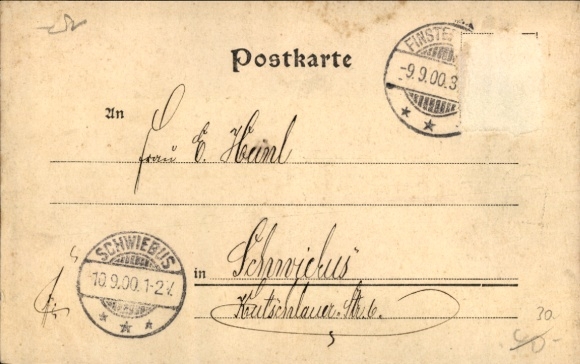 Postkarte
FINSTE
-9.9.00.3
An
Frau E. Heinl
SCHWIEBUS
10.9.00.1-2V.
in Schwiebus
Kutschlauer-Str. 6.
30.